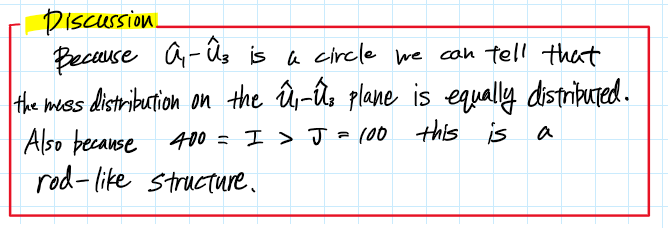 Discussion
Because û₁-û₃ is a circle we can tell that
the mass distribution on the û₁-û₃ plane is equally distributed.
Also because 400 = I > J = 100 this is a
rod-like structure.